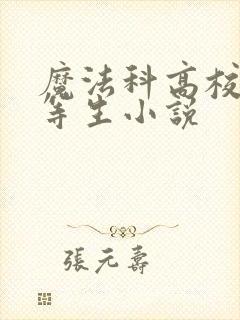 魔法科高校
等生小説
張元壽